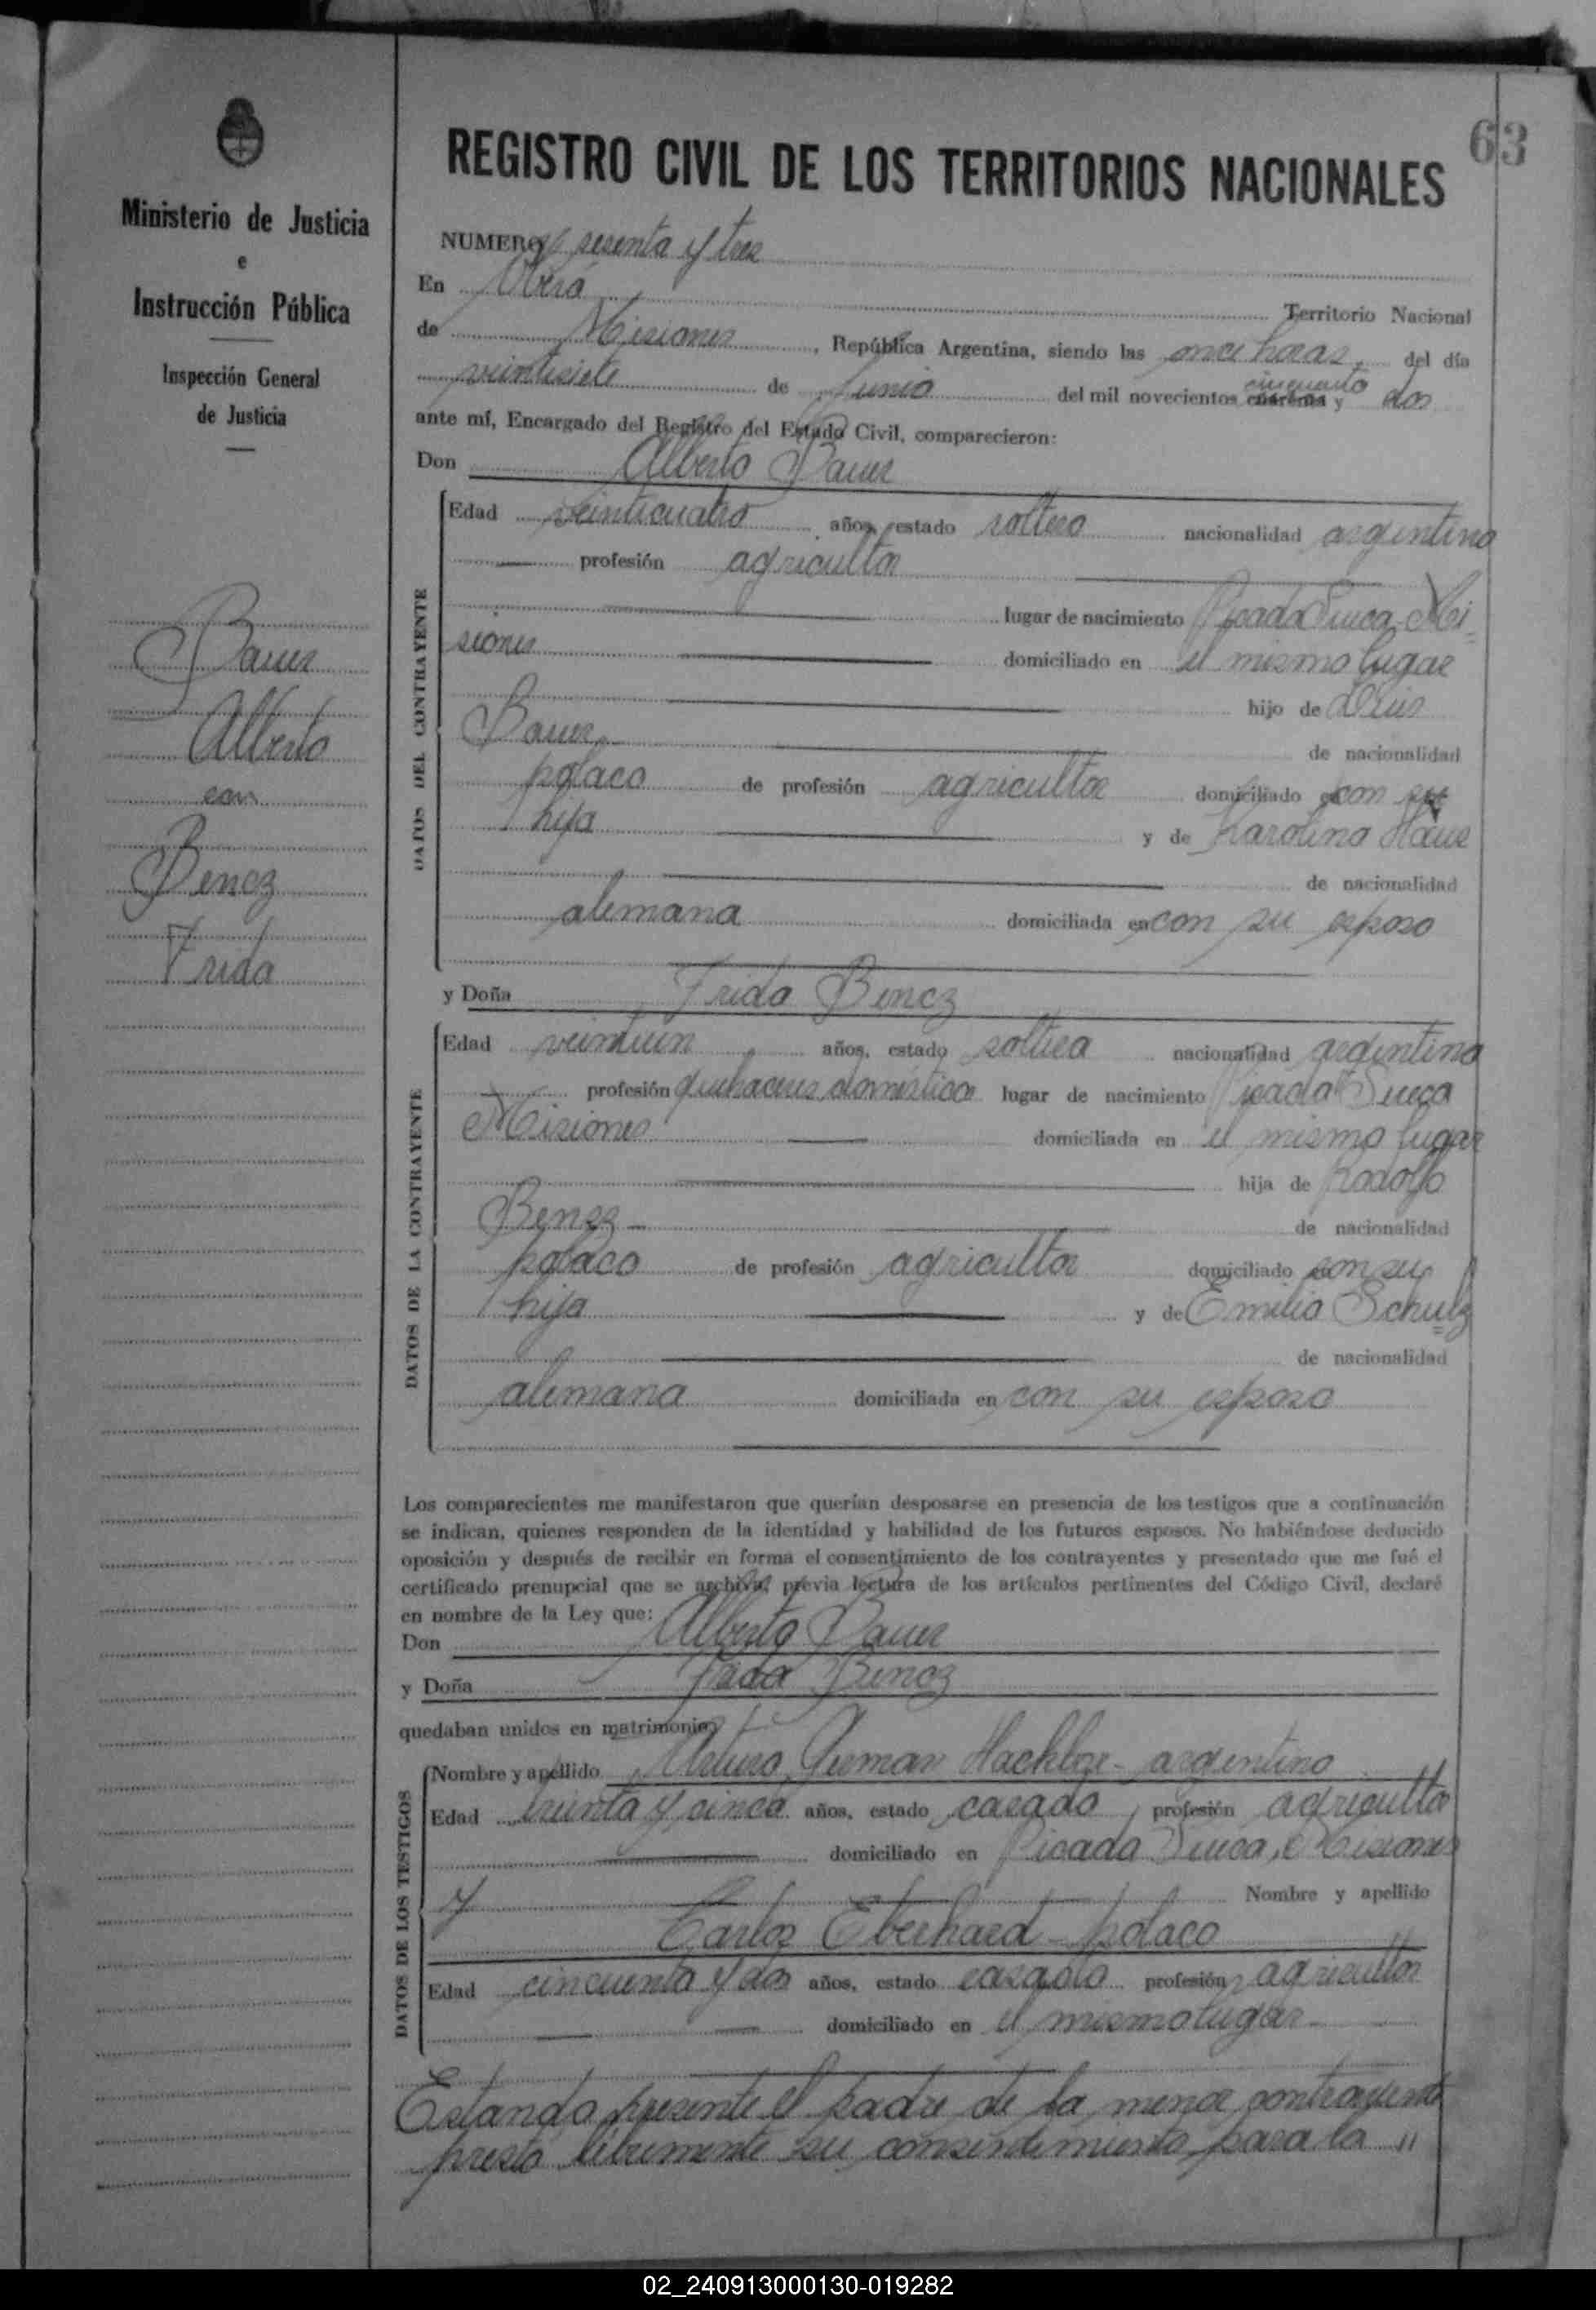 63
Ministerio de Justicia
e
Instrucción Pública
Inspección General
de Justicia
Bauer
Alberto
con
Bencz
Frida
REGISTRO CIVIL DE LOS TERRITORIOS NACIONALES
NUMERO sesenta y tres
En Oberá Territorio Nacional
de Misiones, República Argentina, siendo las once horas, del día
veintisiete de Junio del mil novecientos cuarenta cincuenta y dos
ante mí, Encargado del Registro del Estado Civil, comparecieron:
Don Alberto Bauer
DATOS DEL CONTRAYENTE
Edad veinticuatro años, estado soltero nacionalidad argentino
profesión agricultor
lugar de nacimiento Picada Sueca-Mi=
siones domiciliado en el mismo lugar
hijo de
Bauer de nacionalidad
polaco de profesión agricultor domiciliado en con su
hijo y de Karolina
de nacionalidad
alemana domiciliada en con su esposo
y Doña Frida Bencz
DATOS DE LA CONTRAYENTE
Edad veintiún años, estado soltera nacionalidad argentina
profesión quehaceres domésticos lugar de nacimiento Picada Sueca
Misiones domiciliada en el mismo lugar
hija de Rodolfo
Bencz de nacionalidad
polaco de profesión agricultor domiciliado en con su
hija y de Emilia Schulz
de nacionalidad
alemana domiciliada en con su esposo
Los comparecientes me manifestaron que querían desposarse en presencia de los testigos que a continuación
se indican, quienes responden de la identidad y habilidad de los futuros esposos. No habiéndose deducido
oposición y después de recibir en forma el consentimiento de los contrayentes y presentado que me fué el
certificado prenupcial que se archiva, previa lectura de los artículos pertinentes del Código Civil, declaré
en nombre de la Ley que:
Don Alberto Bauer
y Doña Frida Bencz
quedaban unidos en matrimonio
DATOS DE LOS TESTIGOS
Nombre y apellido Arturo German - argentino
Edad treinta y cinco años, estado casado, profesión agricultor
domiciliado en Picada Sueca, Misiones
y Nombre y apellido
Carlos Eberhard - polaco
Edad cincuenta y dos años, estado casado profesión agricultor
domiciliado en el mismo lugar
Estando presente el padre de la menor contrayente
prestó libremente su consentimiento para la "
02_240913000130-019282